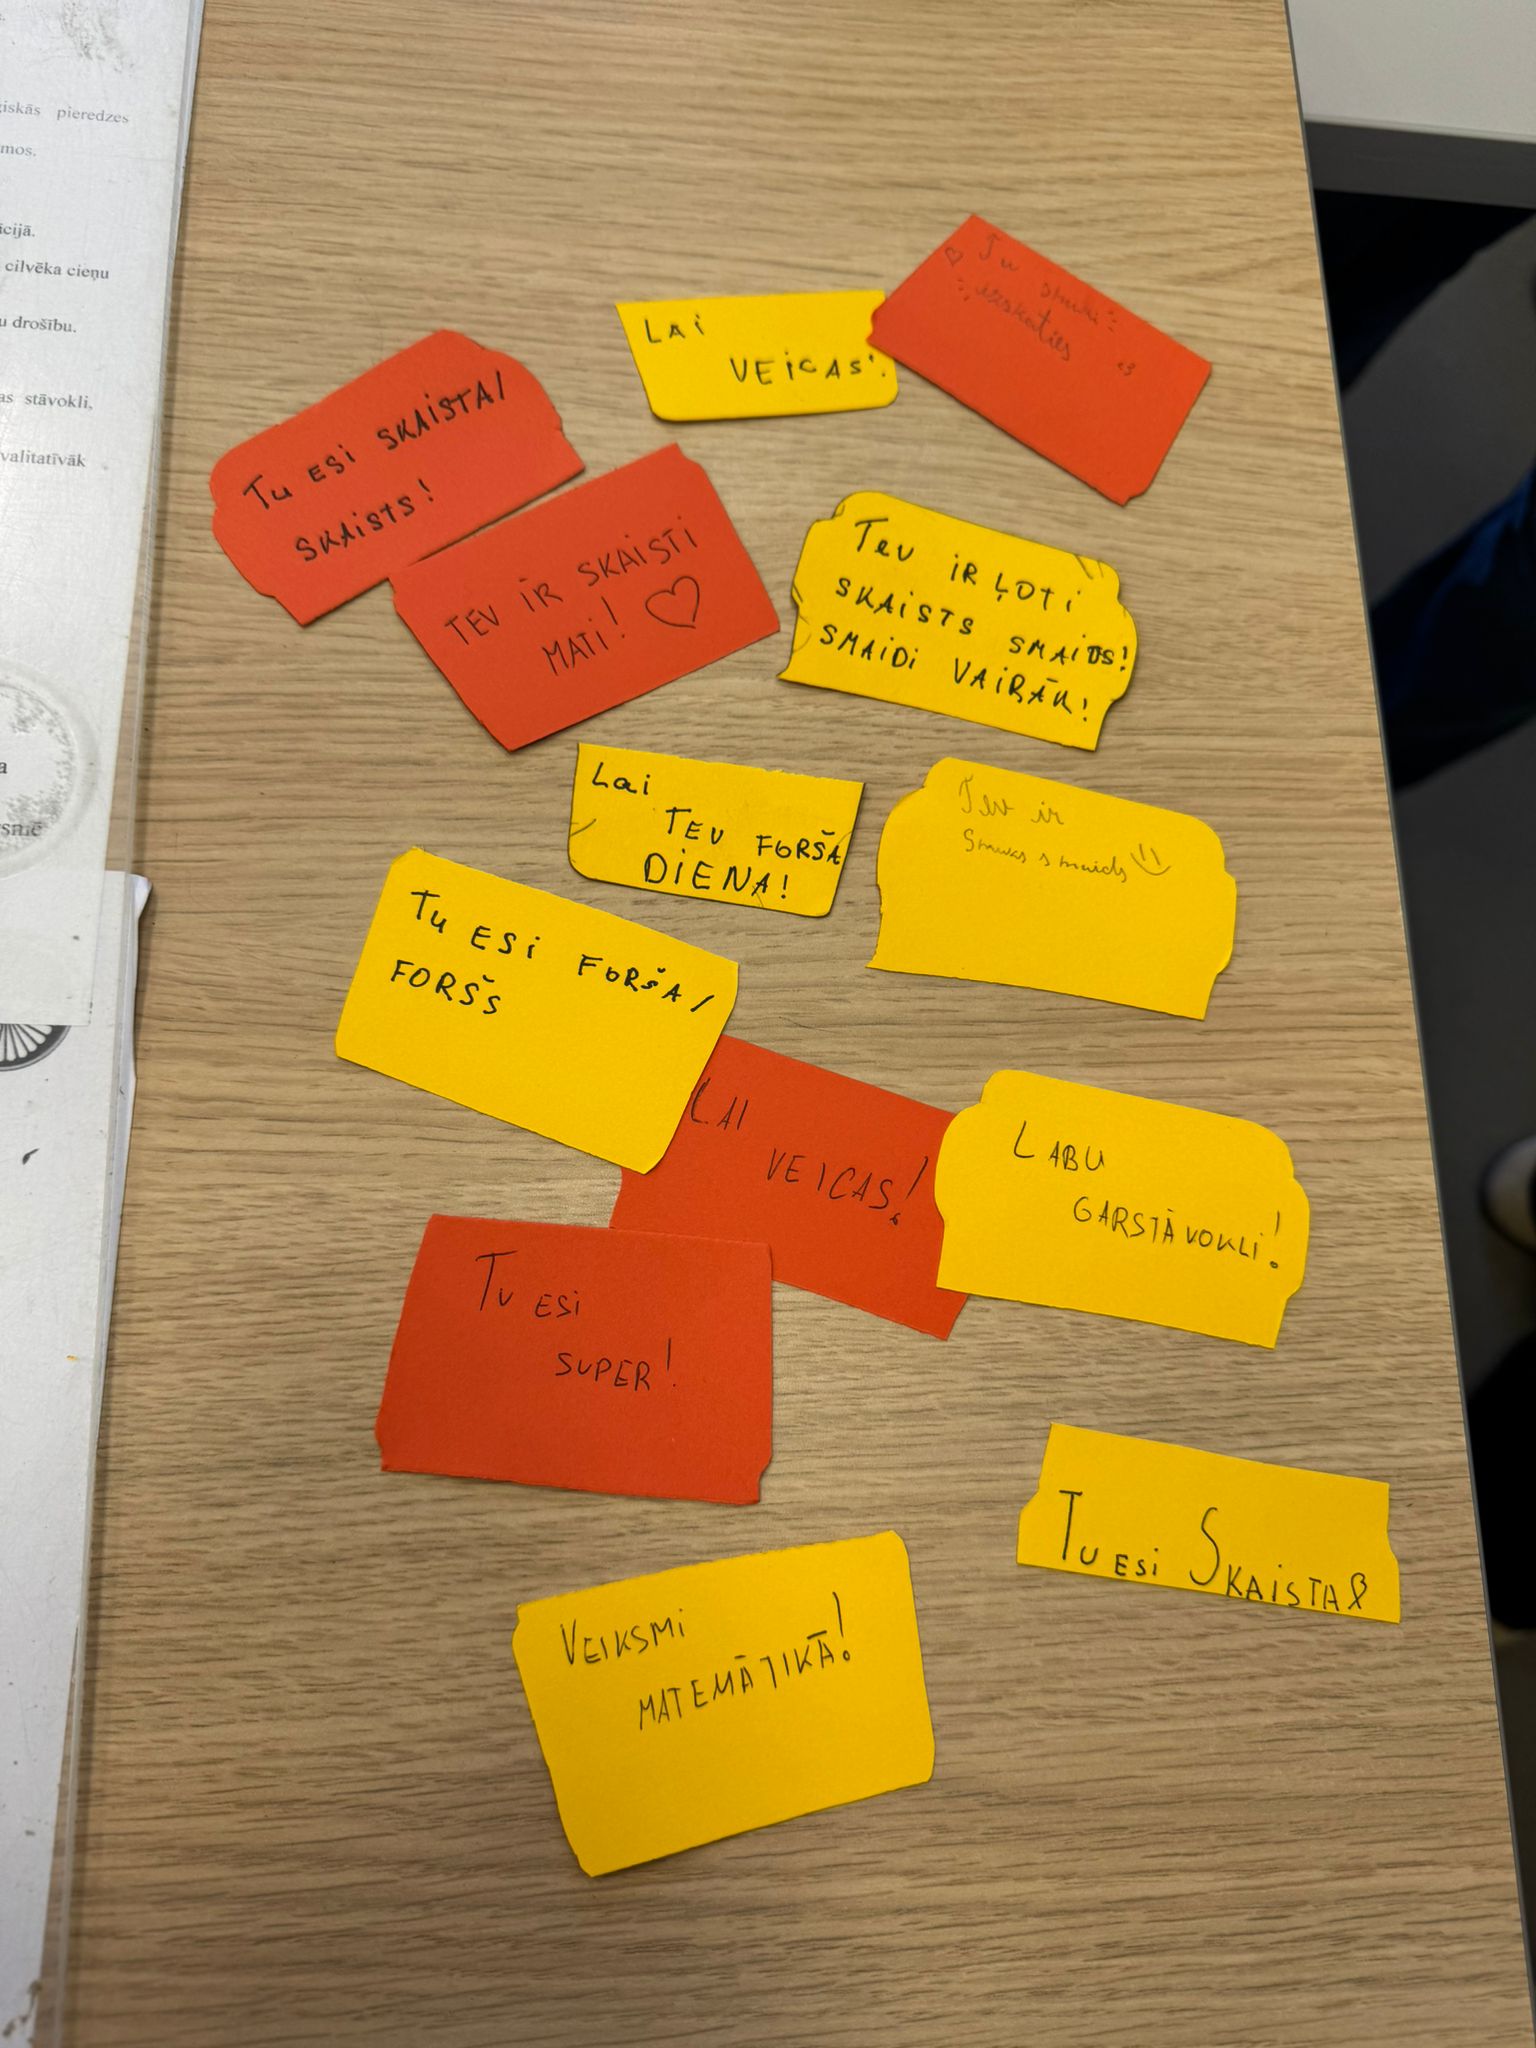 ģiskās pieredzes
mos.
icijā.
cilvēka cieņu
u drošību.
as stāvokli,
valitatīvāk
a
smē
Lai
VEICAS!
Tu smuki
izskaties
<3
Tu ESi SKAiSTA/
SKAiSTS!
TEV iR SKAiSTi
MATi!
Tev iR ĻOTi
SKAiSTS SMAiDS!
SMAiDi VAiRĀK!
Lai
TEV FORŠA
DiENA!
Tev ir
Smuks smaids
Tu ESi FORŠA/
FORŠS
LAI
VEICAS!
LABU
GARSTĀVOKLI!
TU ESi
SUPER!
TU ESi SKAiSTA
VEIKSMi
MATEMĀTIKĀ!